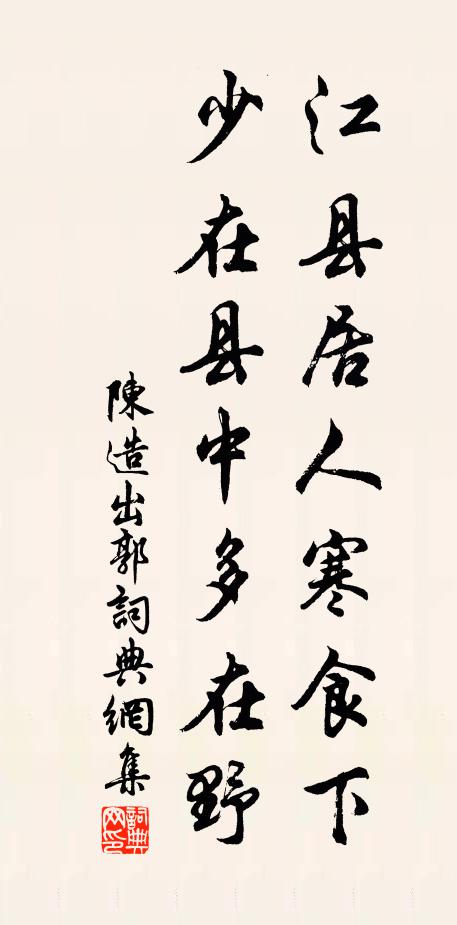 江县居人寒食下
少在县中多在野
陳造出郭詞典網集
詞典网印